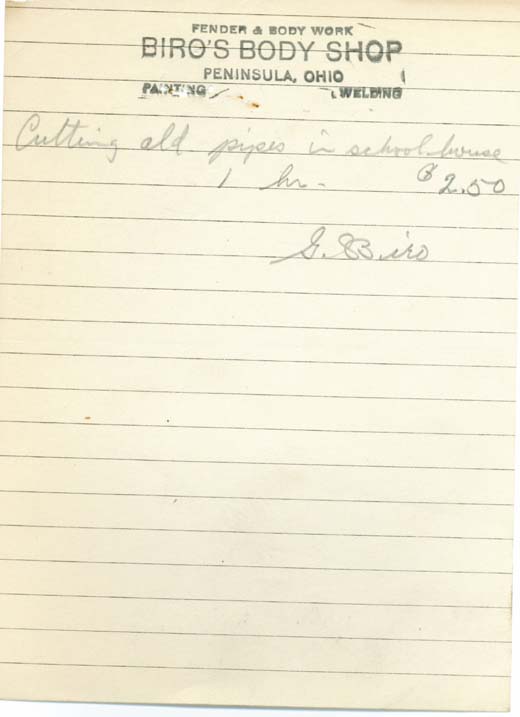 FENDER & BODY WORK
BIRO'S BODY SHOP
PENINSULA, OHIO
PAINTING WELDING
Cutting old pipes in school house
1 hr. $2.50
G. Biro